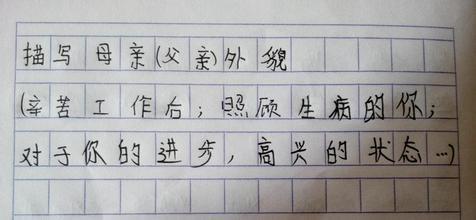 描写母亲(父亲)外貌
(辛苦工作后；照顾生病的你；
对于你的进步，高兴的状态…)